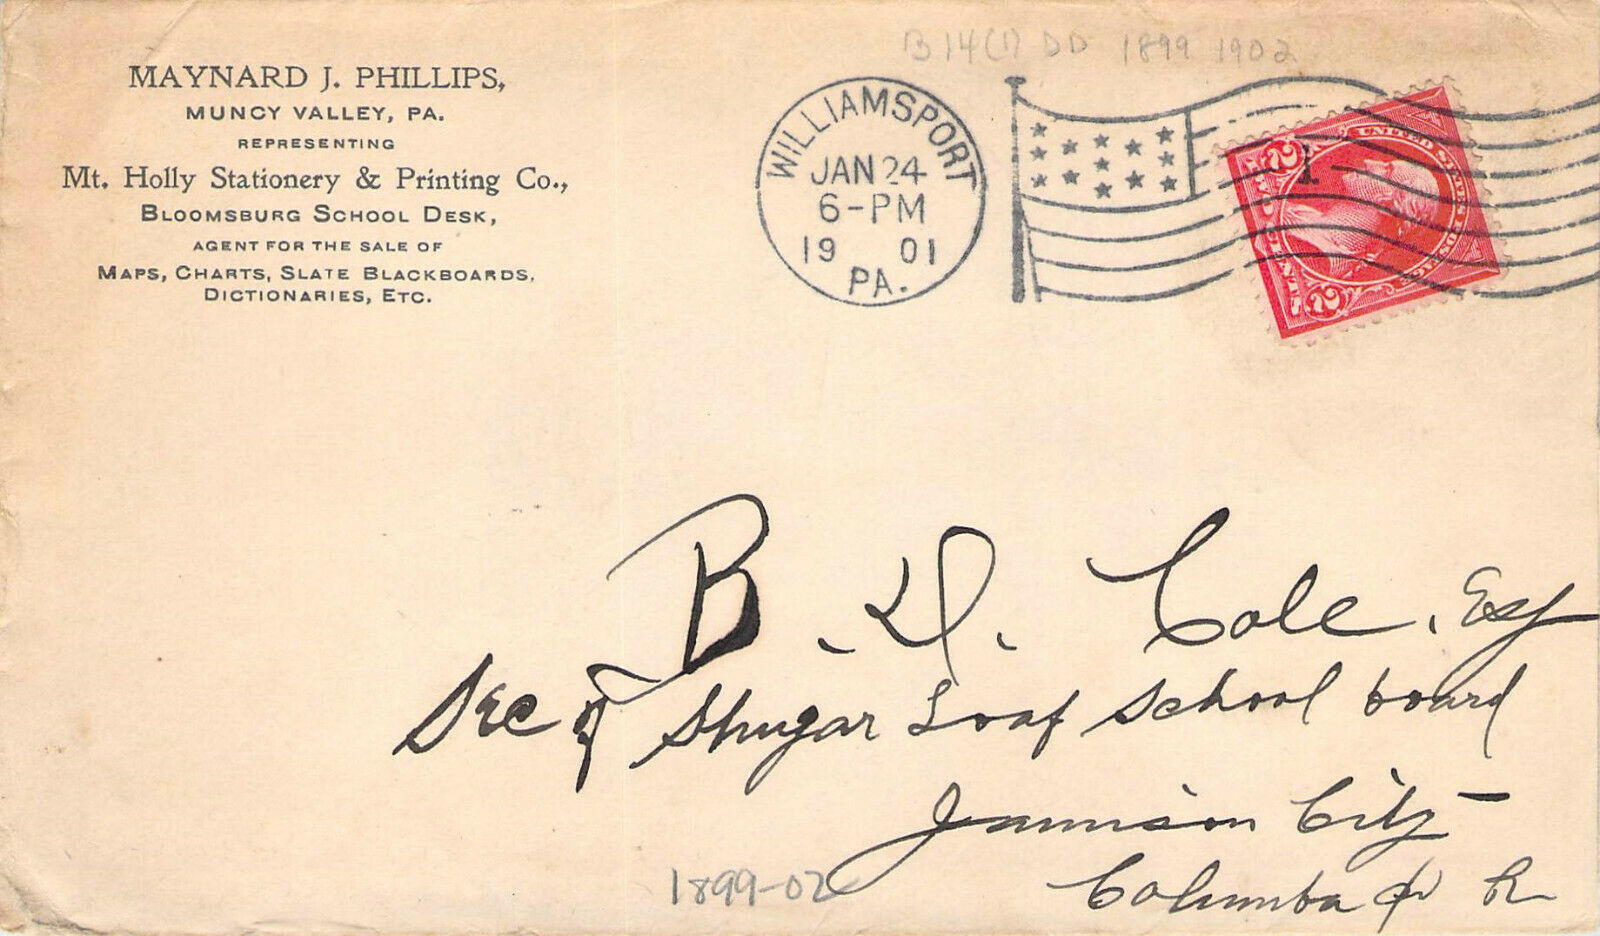 B14(1) DD 1899 1902
MAYNARD J. PHILLIPS,
MUNCY VALLEY, PA.
REPRESENTING
Mt. Holly Stationery & Printing Co.,
BLOOMSBURG SCHOOL DESK,
AGENT FOR THE SALE OF
MAPS, CHARTS, SLATE BLACKBOARDS,
DICTIONARIES, ETC.
WILLIAMSPORT
JAN 24
6-PM
19 01
PA.
1
UNITED STATES POSTAGE
2 2
B. D. Cole, Esq
Sec of Shugar Loaf School board
Jamison City
Columbia
1899-02